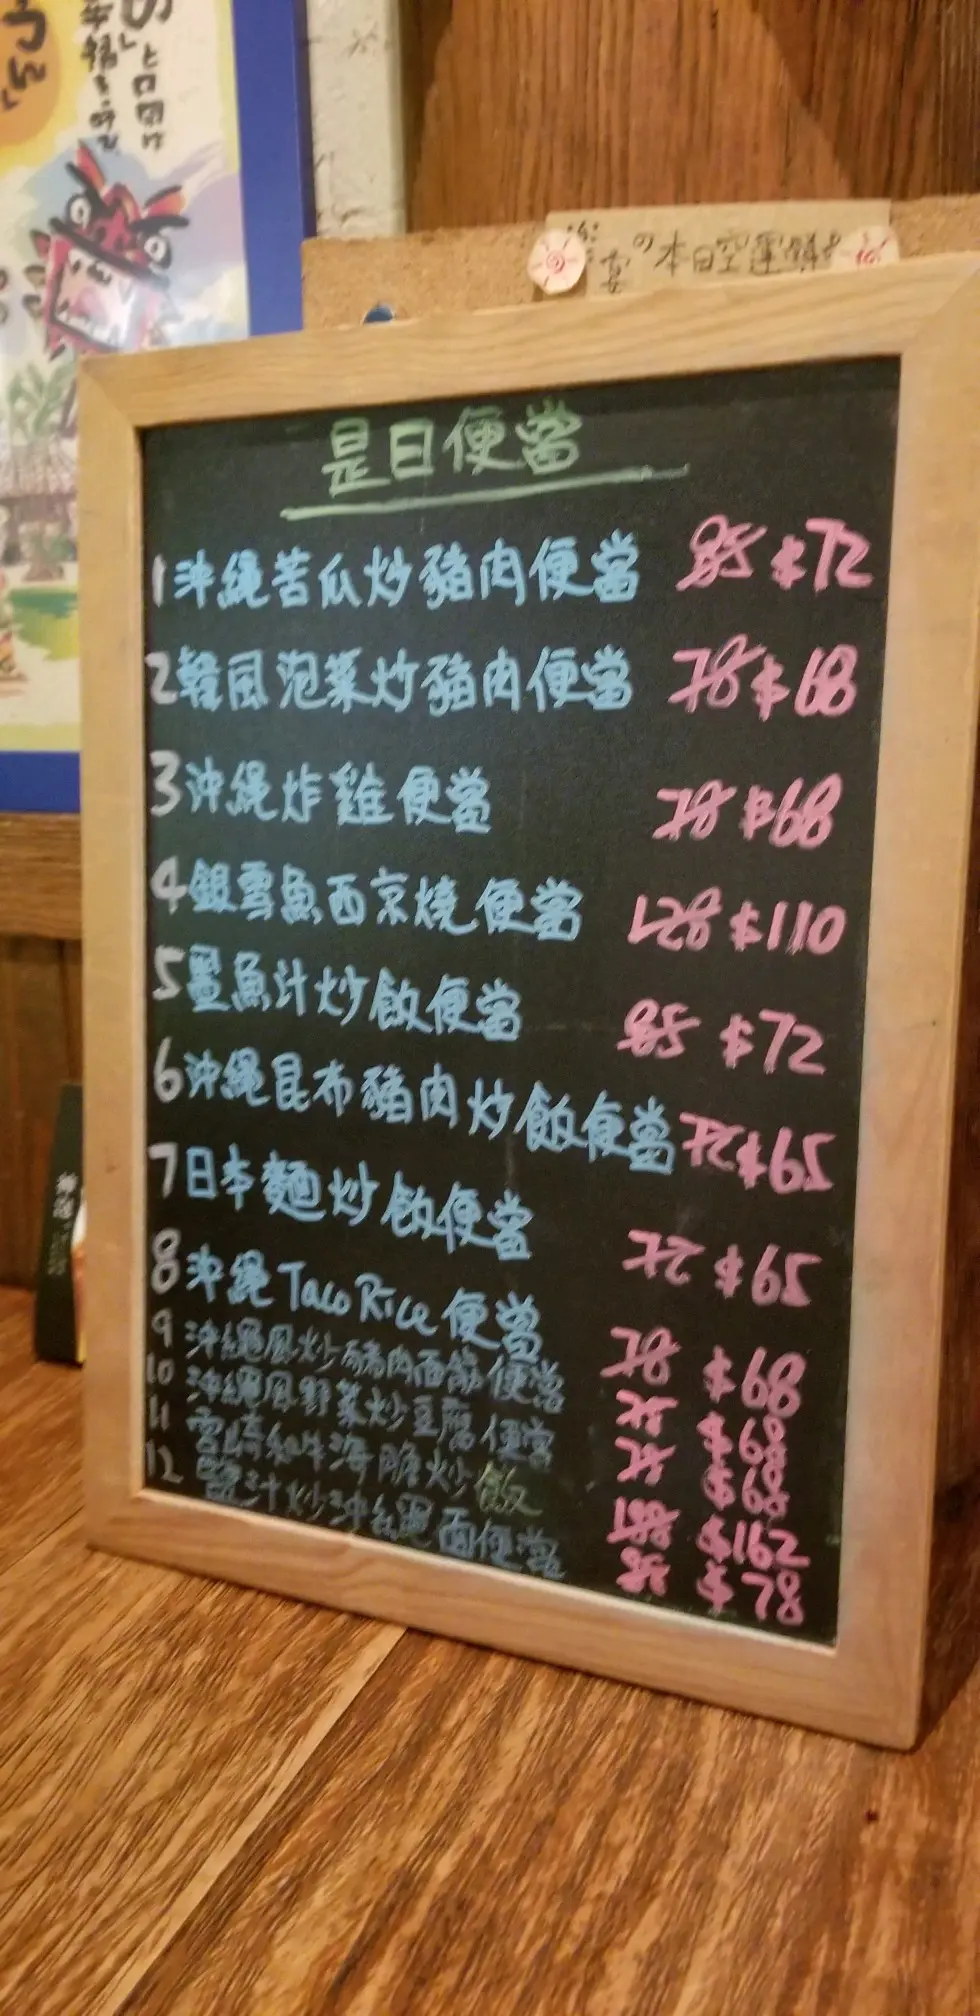 の本日空運
是日便當
1 沖繩苦瓜炒豬肉便當 85 $72
2 韓風泡菜炒豬肉便當 78 $68
3 沖繩炸雞便當 78 $68
4 銀雪魚西京燒便當 128 $110
5 墨魚汁炒飯便當 85 $72
6 沖繩昆布豬肉炒飯便當 72 $65
7 日本麵炒飯便當 72 $65
8 沖繩 Taco Rice 便當 78 $68
9 沖繩風炒豬肉面筋便當 $68
10 沖繩風野菜炒豆腐便當 $68
11 宮崎和牛海膽炒飯 188 $162
12 墨汁炒沖繩面便當 $78